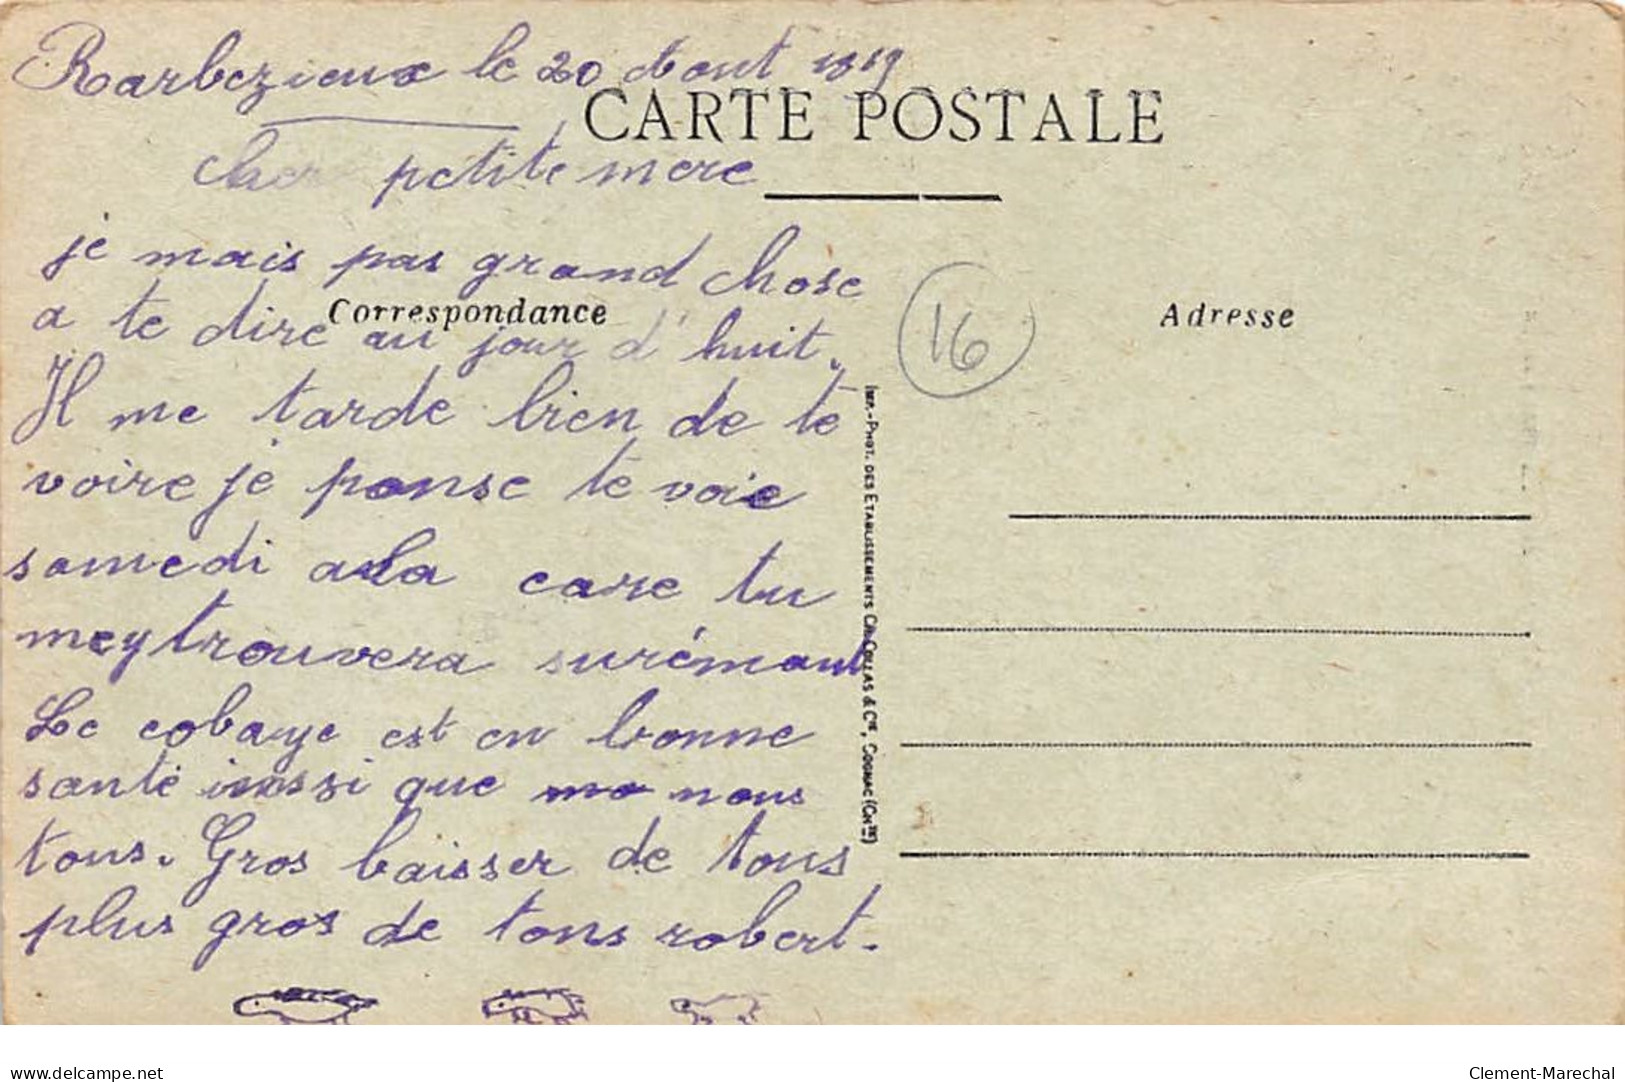 Barbezieux le 20 Aout 1919
CARTE POSTALE
cher petite mere
je mais pas grand chose
a te dire au jour d'huit.
Correspondance
Il me tarde bien de te
voire je panse te voie
samedi a la care tu
mey trouvera surémant
Le cobaye est en bonne
santé inssi que mo nous
tous. Gros baisser de tous
plus gros de tons robert.
16
Adresse
IMP.-PHOT. DES ETABLISSEMENTS CH. COLLAS & Cie, COGNAC (Chte)
delcampe.net
Clement-Marechal